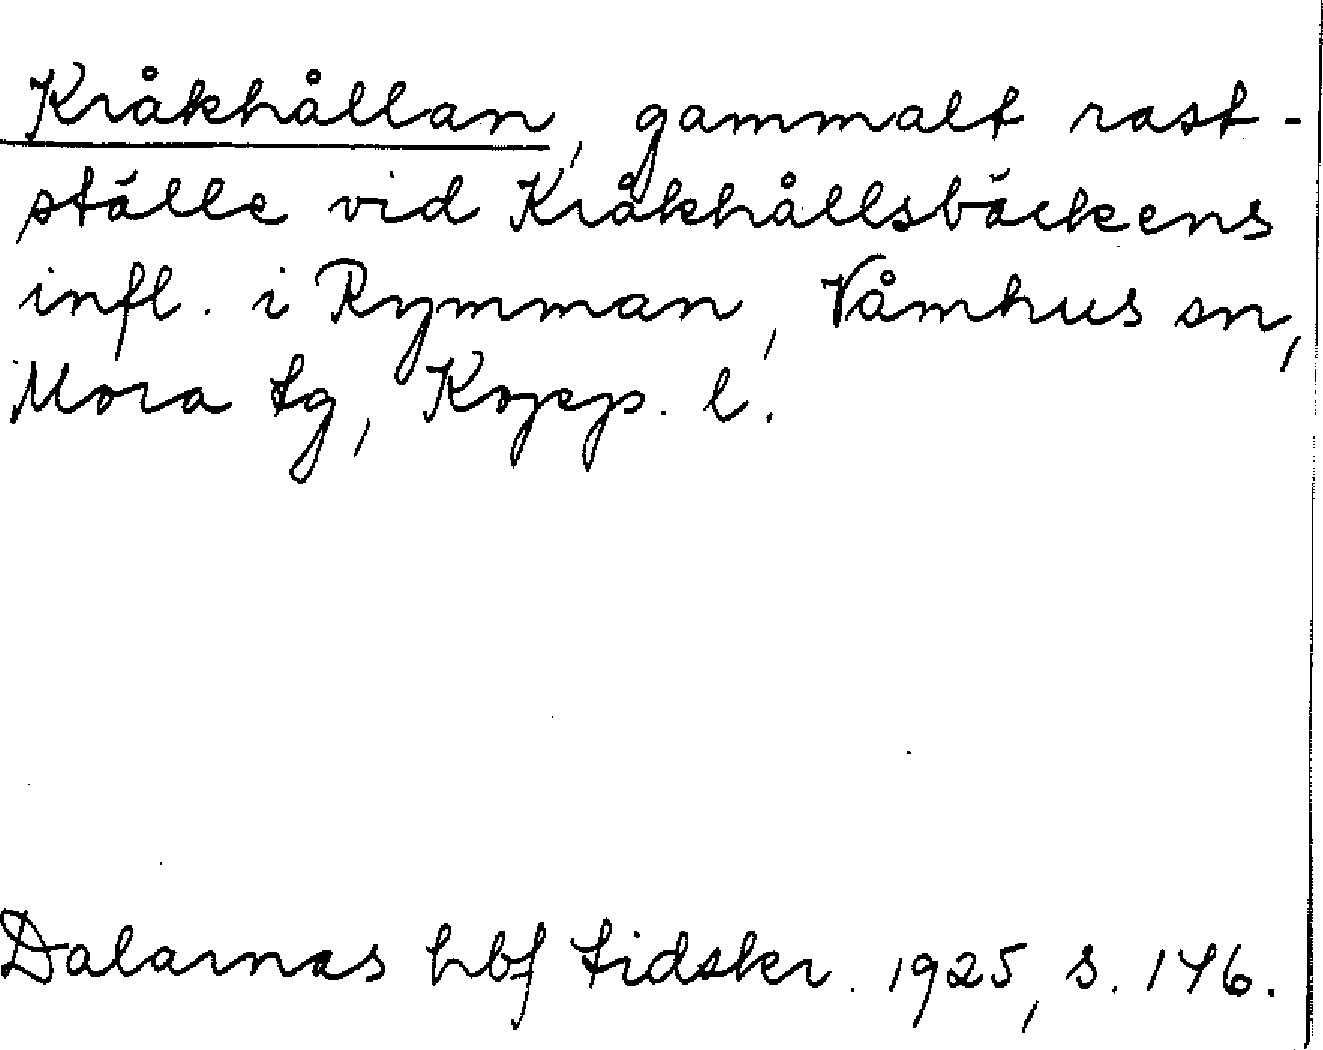 Kråkhållan, gammalt rast-
ställe vid Kråkhållsbäckens
infl. i Rymman, Våmhus sn,
Mora tg, Kopp. l.
Dalarnas hbf tidskr. 1925, s. 146.